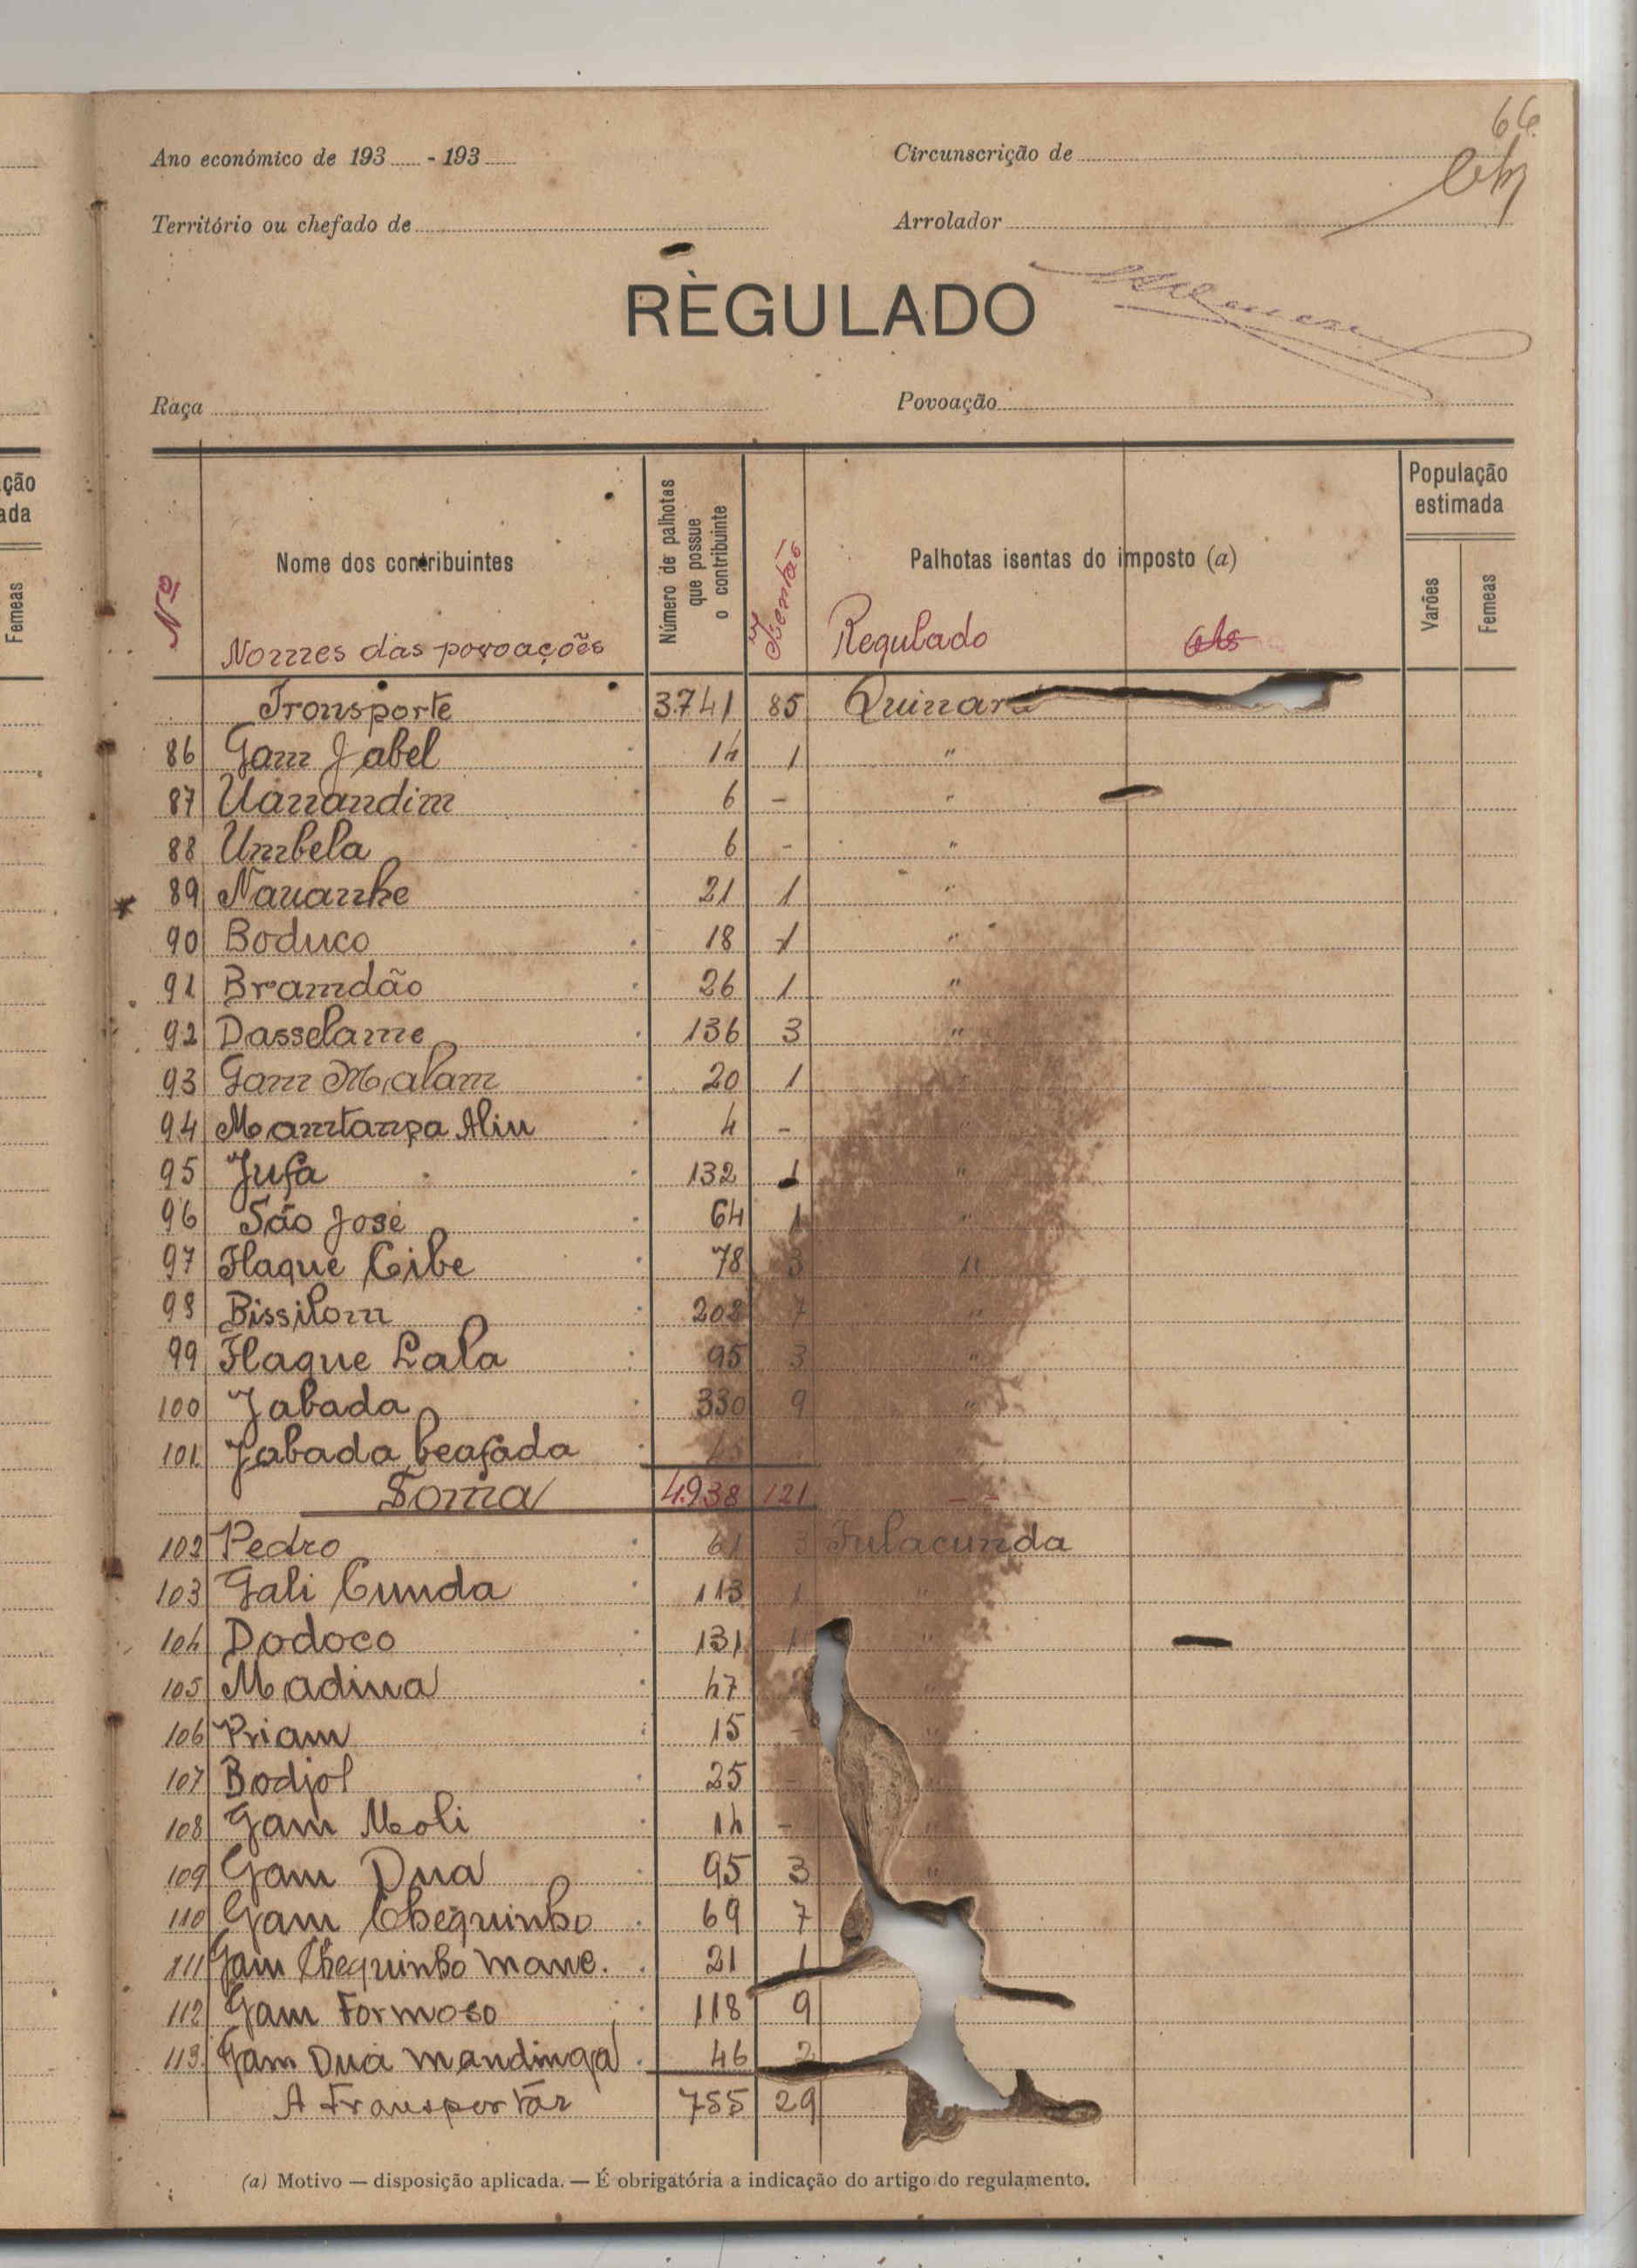 66
Ano económico de 193 - 193
Circunscrição de
Território ou chefado de
Arrolador
REGULADO
Raça
Povoação
Nº
Nome dos contribuintes
Nomes das povoações
Número de palhotas que possue o contribuinte
Isentas
Palhotas isentas do imposto (a)
Regulado
População estimada
Varões
Femeas
Transporte 3.741 85 Quinara
86 Gam Jabel 14 1 "
87 Uanandim 6 - "
88 Umbela 6 - "
89 Nauanhe 21 1 "
90 Boduco 18 1 "
91 Bramdão 26 1 "
92 Dasselame 136 3 "
93 Gam Malam 20 1 "
94 Mamtampa Aliu 4 -
95 Jufa 132 1 "
96 São José 64 1 "
97 Flaque Cibe 78 3 "
98 Bissilom 202 7 "
99 Flaque Lala 95 3 "
100 Jabada 330 9 "
101 Jabada beafada 45
Soma 4.938 121 - -
102 Pedro 61 3 Fulacunda
103 Gali Cunda 113 1 "
104 Dodoco 131 1 "
105 Madina 47 "
106 Priam 15 - "
107 Bodjol 25 - "
108 Gam Moli 14 - "
109 Gam Dua 95 3 "
110 Gam Chequinho 69 7
111 Gam Chequinho mane. 21 1
112 Gam Formoso 118 9
113 Gam Dua mandinga 46 2
A Transportar 755 29
(a) Motivo — disposição aplicada. — É obrigatória a indicação do artigo do regulamento.
ção
ada
Femeas